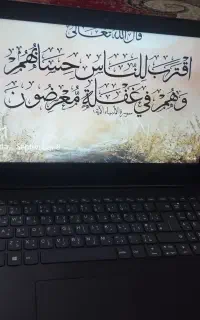 قال الله تعالى
اقترب للناس حسابهم
وهم في غفلة معرضون
سورة الأنبياء